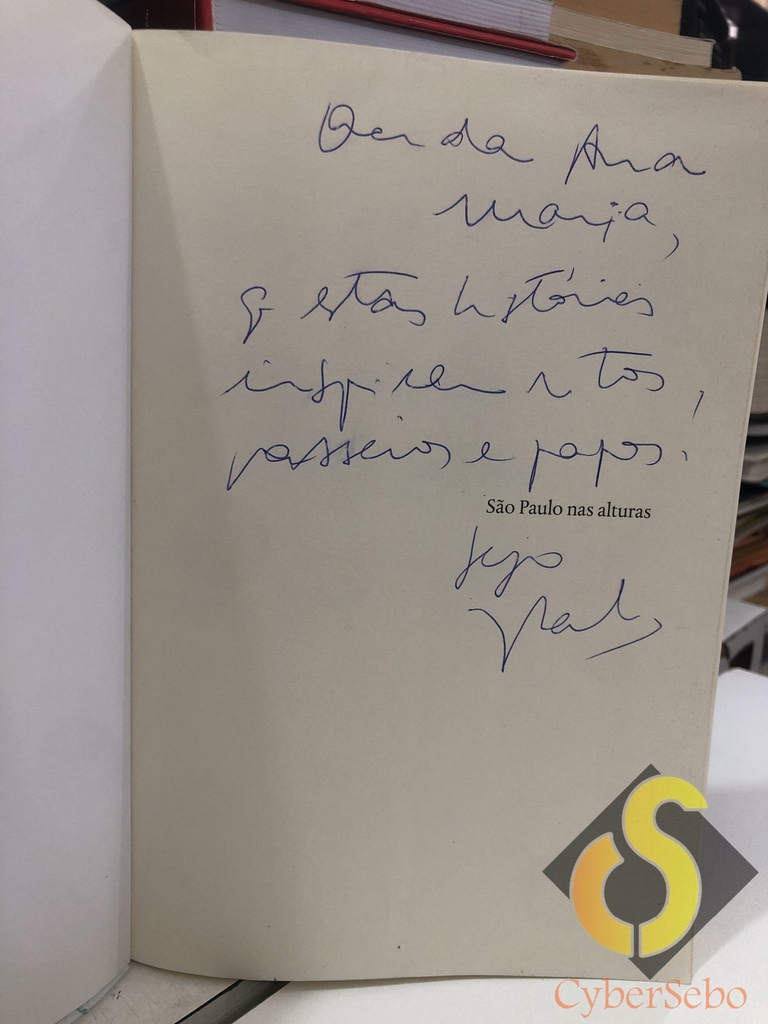 Querida Ana
Maria,
q estas histórias
inspirem
passeios e papos.
São Paulo nas alturas
bejo
CyberSebo